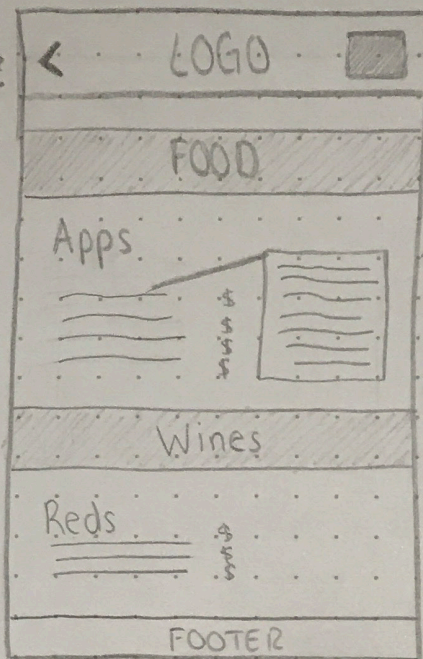 < LOGO
FOOD
Apps
$
$
$
$
Wines
Reds
$
$
$
FOOTER